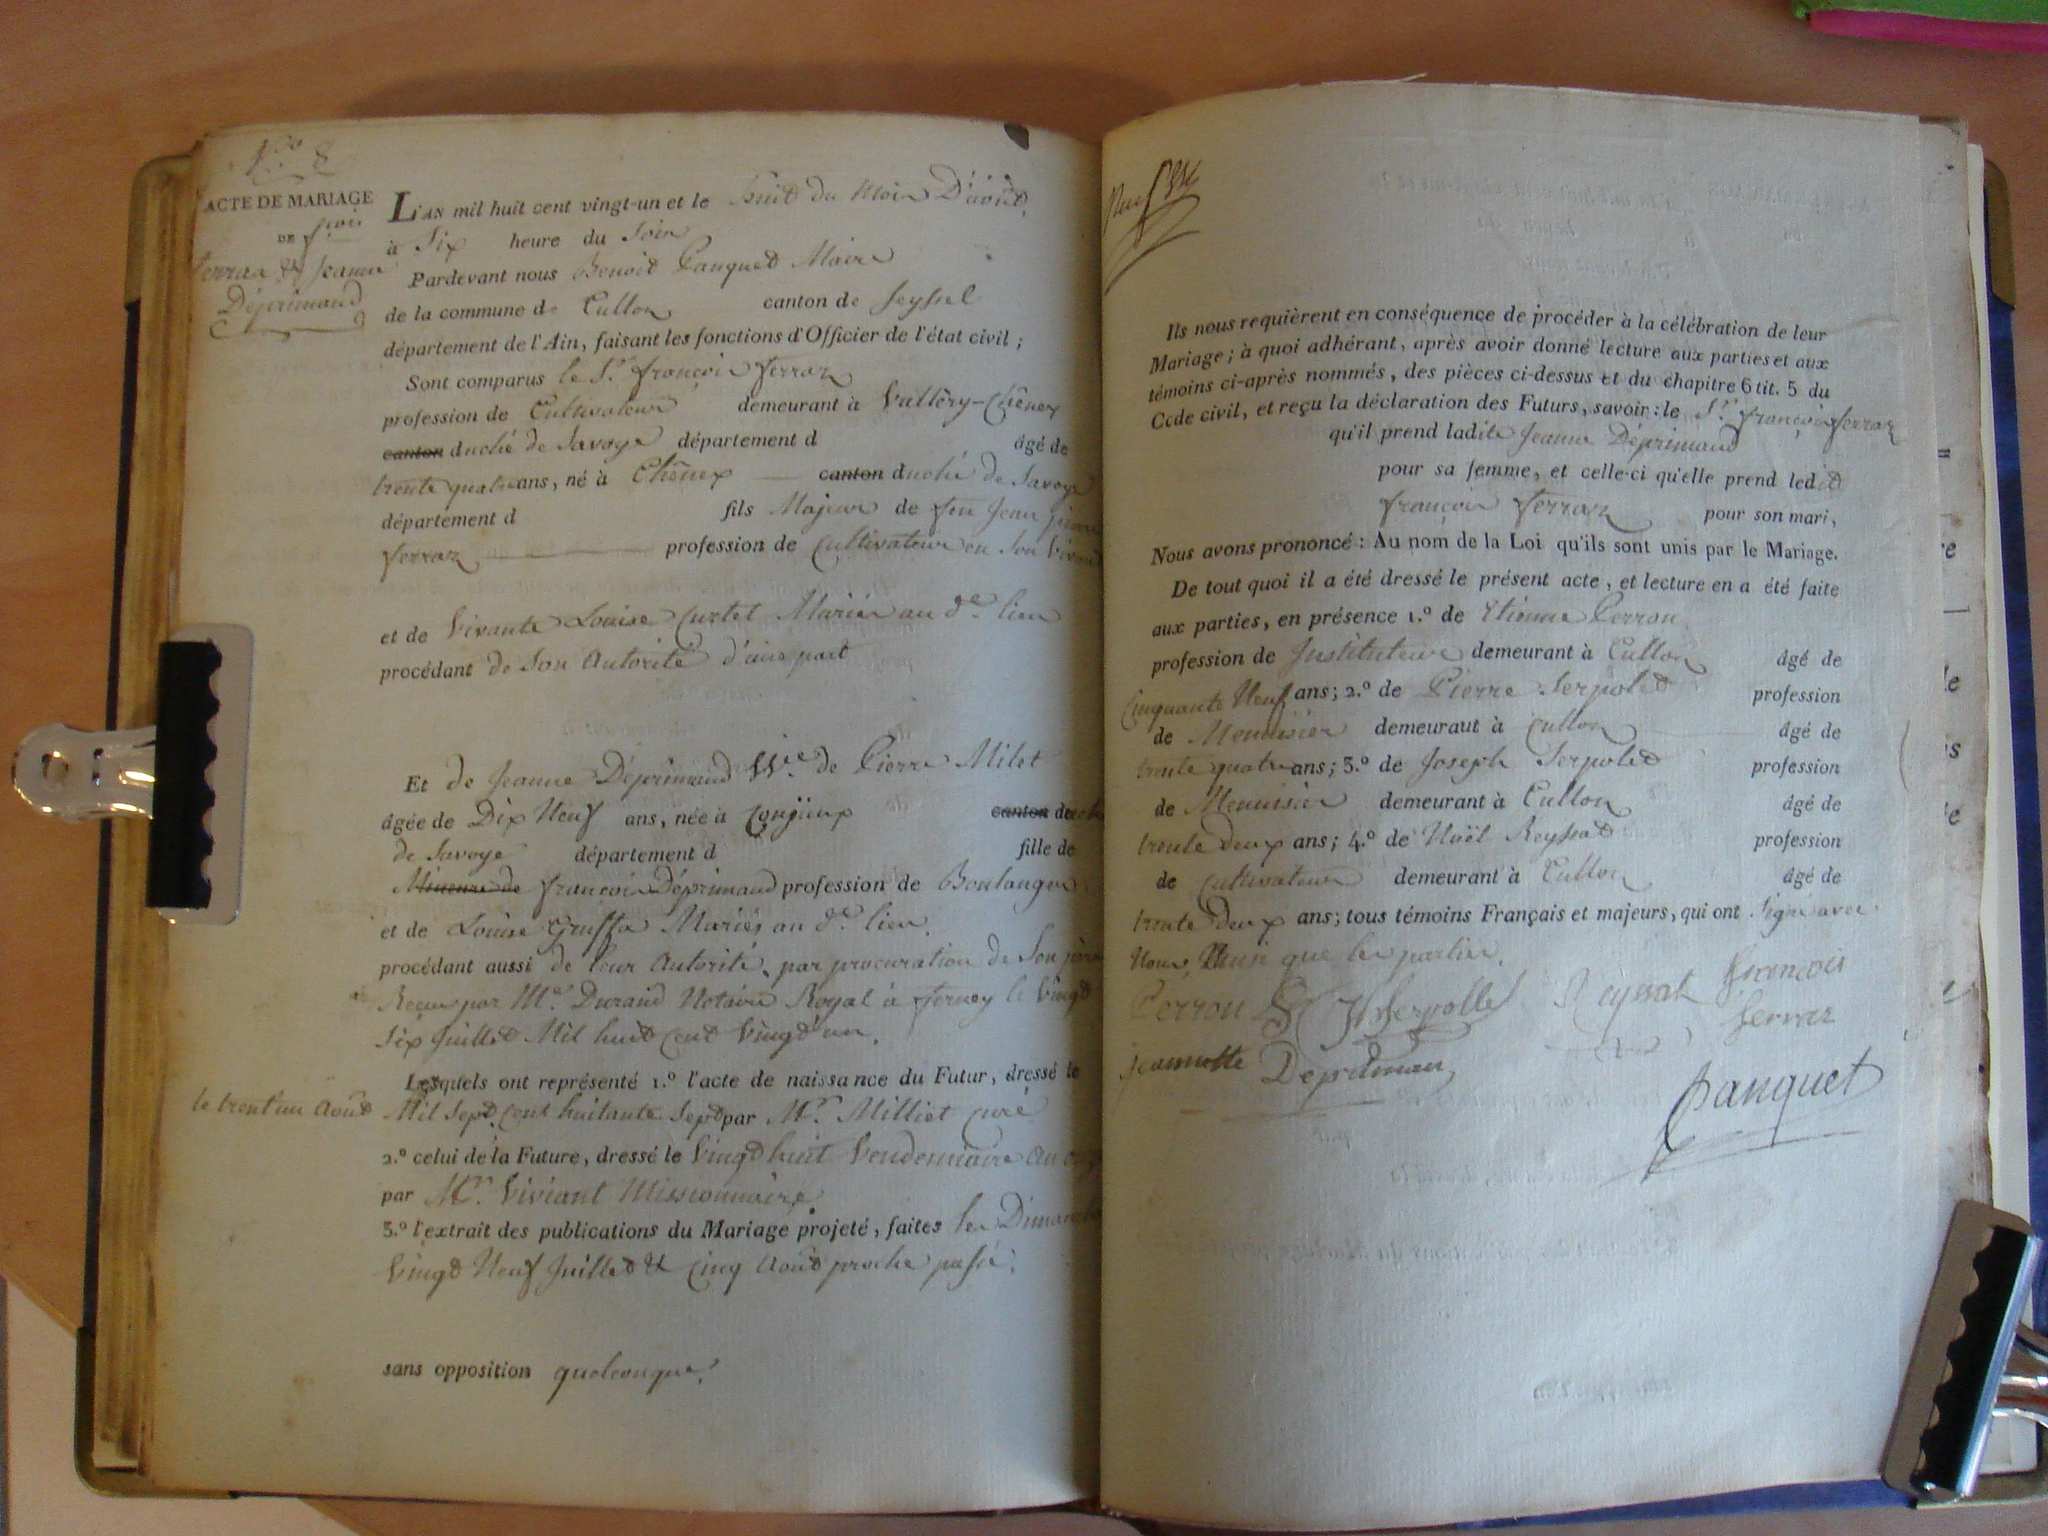 N.ro 8
ACTE DE MARIAGE
DE fçois
ferraz & Jeanne
Déprimaud
L'AN mil huit cent vingt-un et le huit du Mois D'août,
à Six heure du Soir
Pardevant nous Benoit Panquet Maire
de la commune de Culloz canton de Seyssel
département de l'Ain, faisant les fonctions d'Officier de l'état civil;
Sont comparus le S.r françois ferraz
profession de Cultivateur demeurant à Vallery-Chênex
canton duché de Savoye département d âgé de
trente quatre ans, né à Chênex canton duché de Savoye
département d fils Majeur de feu Jean pierre
ferraz profession de Cultivateur en Son Vivant
et de Vivante Louise Curtet Mariés au d.e lieu
procédant de Son Autorité d'une part
Et de Jeanne Déprimaud V.ve de Pierre Milet
âgée de Dix Neuf ans, née à Conjux canton de
de Savoye département d fille de
Mineure de françois Déprimaud profession de Boulanger
et de Louise Gruffa Mariés au d.e lieu.
procédant aussi de leur Autorité, par procuration de Son père
Reçue par M.e Durand Notaire Royal à ferney le Vingt
Six Juillet Mil huit cent Vingt un.
Lesquels ont représenté 1.º l'acte de naissance du Futur, dressé le
le trent'un Août Mil Sept cent huitante Sept par M.r Milliet curé
2.º celui de la Future, dressé le Vingt huit Vendemiaire an
par M.r Viviant Missionnaire
3.º l'extrait des publications du Mariage projeté, faites les Dimanches
Vingt Neuf Juillet & Cinq Août proche passé.
sans opposition quelconque.
Ils nous requièrent en conséquence de procéder à la célébration de leur
Mariage; à quoi adhérant, après avoir donné lecture aux parties et aux
témoins ci-après nommés, des pièces ci-dessus et du chapitre 6 tit. 5 du
Code civil, et reçu la déclaration des Futurs, savoir: le S.r françois ferraz
qu'il prend ladite Jeanne Déprimaud
pour sa femme, et celle-ci qu'elle prend ledit
françois ferraz pour son mari,
Nous avons prononcé: Au nom de la Loi qu'ils sont unis par le Mariage.
De tout quoi il a été dressé le présent acte, et lecture en a été faite
aux parties, en présence 1.º de Etienne Perron
profession de Instituteur demeurant à Culloz âgé de
Cinquante Neuf ans; 2.º de Pierre Serpolet profession
de Menuisier demeuraut à Culloz âgé de
trente quatre ans; 3.º de Joseph Serpolet profession
de Menuisier demeurant à Culloz âgé de
trente deux ans; 4.º de Noël Reyssat profession
de Cultivateur demeurant à Culloz âgé de
trente Deux ans; tous témoins Français et majeurs, qui ont Signé avec
Nous, Ainsi que les parties.
Perron Serpollet Reyssat francois
ferraz
Jeannette Depriman
Panquet